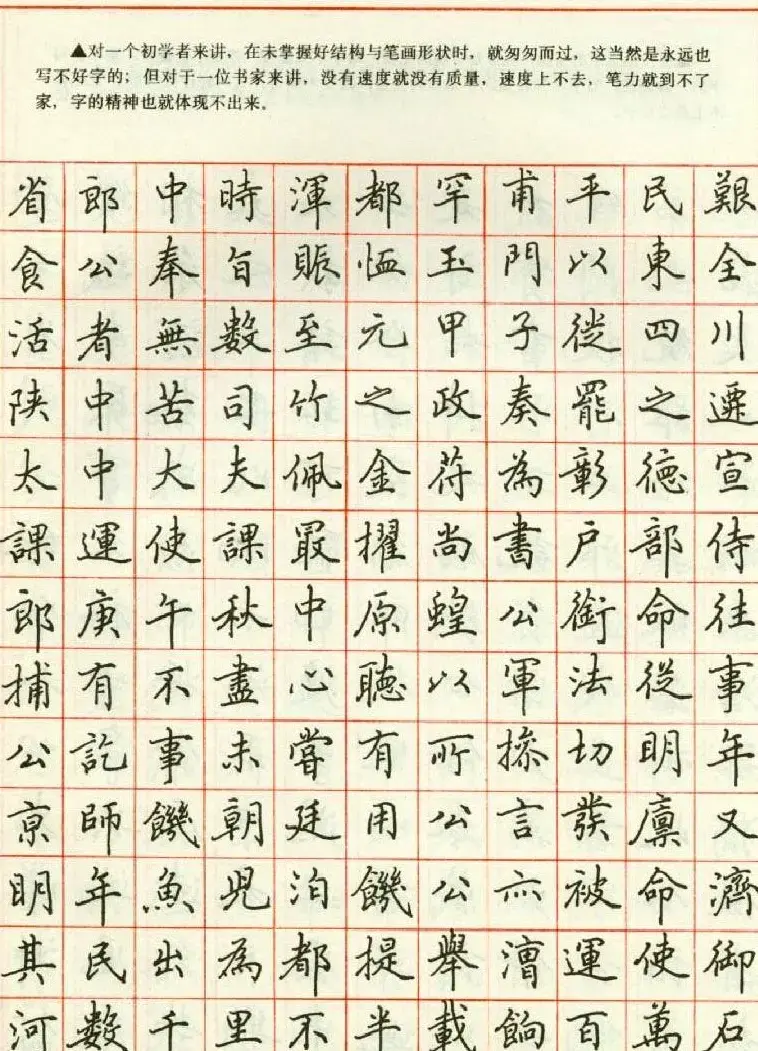 ▲对一个初学者来讲，在未掌握好结构与笔画形状时，就匆匆而过，这当然是永远也
写不好字的；但对于一位书家来讲，没有速度就没有质量，速度上不去，笔力就到不了
家，字的精神也就体现不出来。
省郎中時渾都罕甫平民艱
食公奉旨賑恤玉門以東全
活者無數至元甲子徙四川
陝中苦司竹之政奏罷之遷
太中大夫佩金符為彰德宣
課運使課最擢尚書戶部侍
郎庚午秋中原蝗公銜命往
捕有不盡心聽以軍法從事
公訖事未嘗有所操切明年
京師饑朝廷用公言發廩又
明年魚兒泊饑公亦被命濟
其民出為都提舉漕運使御
河數千里不半載餉百萬石